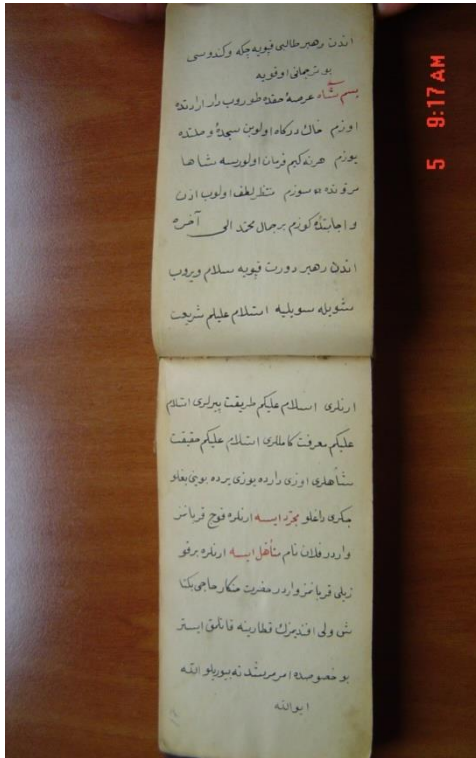 اندن رهبر طالبی قپویه چکه وکندوسی
بو ترجمانی اوقویه
بسم شاه عرصهٔ حقده طوروب دار ارادتده
اوزم خاك درکاه اولوبن سجدهٔ وملتده
یوزم هرنه کیم فرمان اولورسه شاها
مروتده سوزم منتظر لطف اولوب اذن
واجابتده کوزم برجمال محمد الی آخره
اندن رهبر دورت قپویه سلام ویروب
شویله سویلیه السلام علیکم شریعت
ارنلری السلام علیکم طریقت پیرلری السلام
علیکم معرفت کاملاری السلام علیکم حقیقت
شاهلری اوزی دارده یوزی یرده بوینی بغلو
جکری داغلو مجرد ایسه ارنلره قوچ قربانمز
واردر فلان نام متأهل ایسه ارنلره برقو
زیلی قربانمز واردر حضرت خنکار حاجی بکتا
ش ولی افندیمزك قطارینه قاتلمق ایستر
بو خصوصده امر مرشد نه بیوریلور الله
ایوالله
5 9:17AM